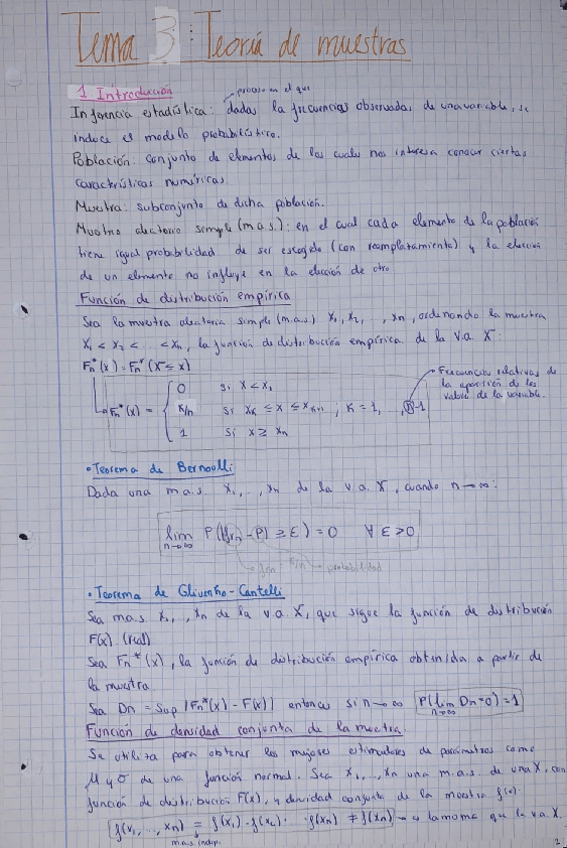 Tema 3: Teoría de muestras
1 Introducción
proceso en el que
Inferencia estadística: dadas la frecuencias observadas de una variable, se
induce el modelo probabilístico.
Población: conjunto de elementos de los cuales nos interesa conocer ciertas
características numéricas.
Muestra: subconjunto de dicha población.
Muestra aleatoria simple (m.a.s.): en el cual cada elemento de la población
tiene igual probabilidad de ser escogido (con reemplazamiento) y la elección
de un elemento no influye en la elección de otro
Función de distribución empírica
Sea la muestra aleatoria simple (m.a.s.) x1, x2, , xn, ordenando la muestra
x1 < x2 < ... < xn, la función de distribución empírica de la v.a. X:
Fn*(x) = Fn*(X ≤ x)
Frecuencias relativas de
la aparición de los
valores de la variable.
0 si x < x1
Fn*(x) = K/n si xK ≤ x ≤ xK+1 ; K = 1, , n-1
1 si x ≥ xn
• Teorema de Bernoulli
Dada una m.a.s. x1, .., xn de la v.a. X, cuando n→∞:
lim n→∞ P(|frn - P| ≥ ε) = 0 ∀ ε > 0
probabilidad
• Teorema de Glivenko-Cantelli
Sea m.a.s. x1, , xn de la v.a. X, que sigue la función de distribución
F(x) (real)
Sea Fn*(x), la función de distribución empírica obtenida a partir de
la muestra
Sea Dn = Sup |Fn*(x) - F(x)| entonces si n→∞ P(lim n→∞ Dn=0) = 1
Función de densidad conjunta de la muestra.
Se utiliza para obtener los mejores estimadores de parámetros como
μ y σ de una función normal. Sea x1, ..., xn una m.a.s. de una X, con
función de distribución F(x), y densidad conjunta de la muestra f(x):
f(x1, ..., xn) = f(x1) · f(x2) · f(xn) ≠ f(xn) → la misma que la v.a. X.
m.a.s indep.
2